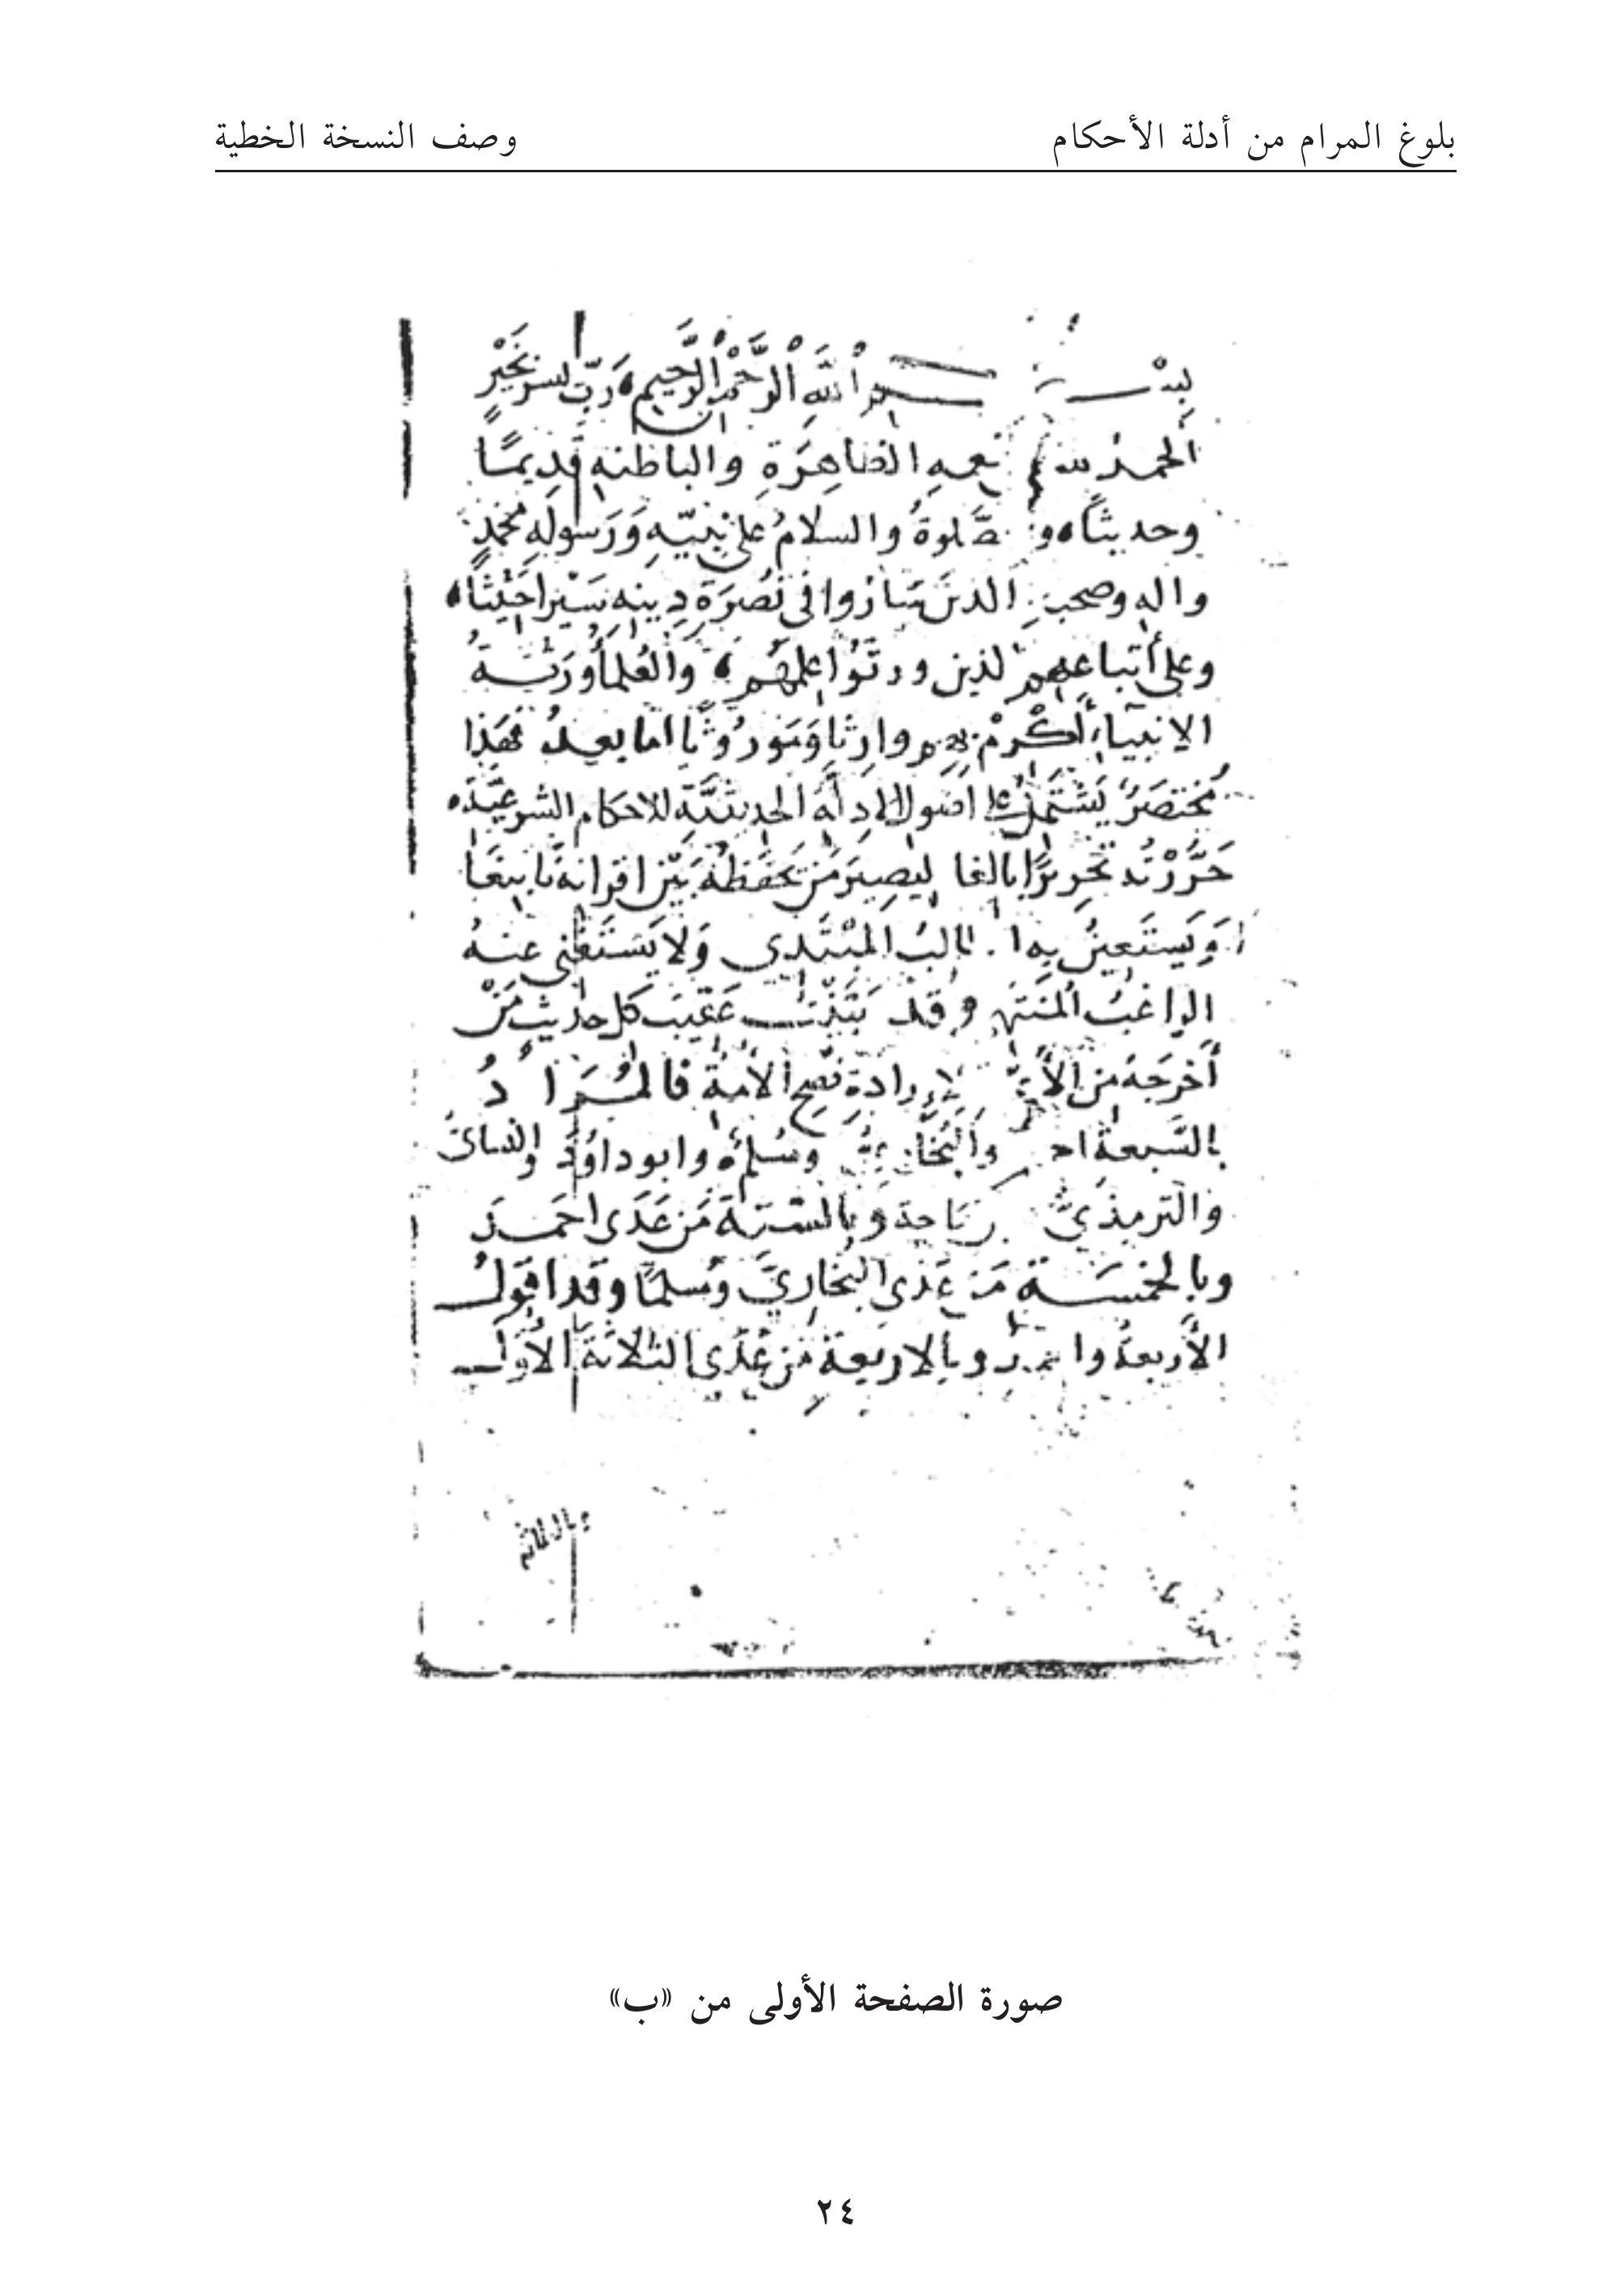 بلوغ المرام من أدلة الأحكام
وصف النسخة الخطية
بسم الله الرحمن الرحيم رب يسر بخير
الحمد لله نعمه الظاهرة والباطنه قديمًا
وحديثًا و صلوة والسلام على نبيّه وَرَسوله محمدٍ
واله وصحبه الذين سَارُوا فى نُصرَة دِينِه سَيْرا حَثيْثًا
وعلى أتباعهم لذين ورثوا علمهم والعُلماُ ورَثَةُ
الانبياءِ أكْرمْ بهم وارثا وَمَورُوثًا اما بعدُ فهَذا
مُختصَرٌ يَشْتَمل على اصُول الادلة الحديثيَّة للاحكام الشرعيَّة
حَرَّرْتُه تحريرًا بالغا ليصِيرَ مَن يَحفَظهُ بَيْن اقرانهِ نابغَا
وَيَستَعينُ به الطالبُ المبْتَدي وَلا يَسْتَغني عنهُ
الراغبُ المنتهى وقد بَيَّنْتُ عَقيبَ كل حديثٍ مَنْ
أخرَجَهُ من الأئمة لإرادة نُصحِ الأمَّة فالمُرَادُ
بالسَّبعة احمد والبُخاريُّ ومسلمٌ وابو داوُدَ والنسائ
والترمذيُّ مَاجة وبالستة مَن عَدَى احمَدَ
وبالخمسَة مَن عَدَى البُخاريَّ ومُسلمًا وقد اقولُ
الأربعةُ واحمد وبالاربعة مَن عَدَى الثلاثةَ الأُوَلَ
وبالثلاثه
صورة الصفحة الأولى من «ب»
٢٤